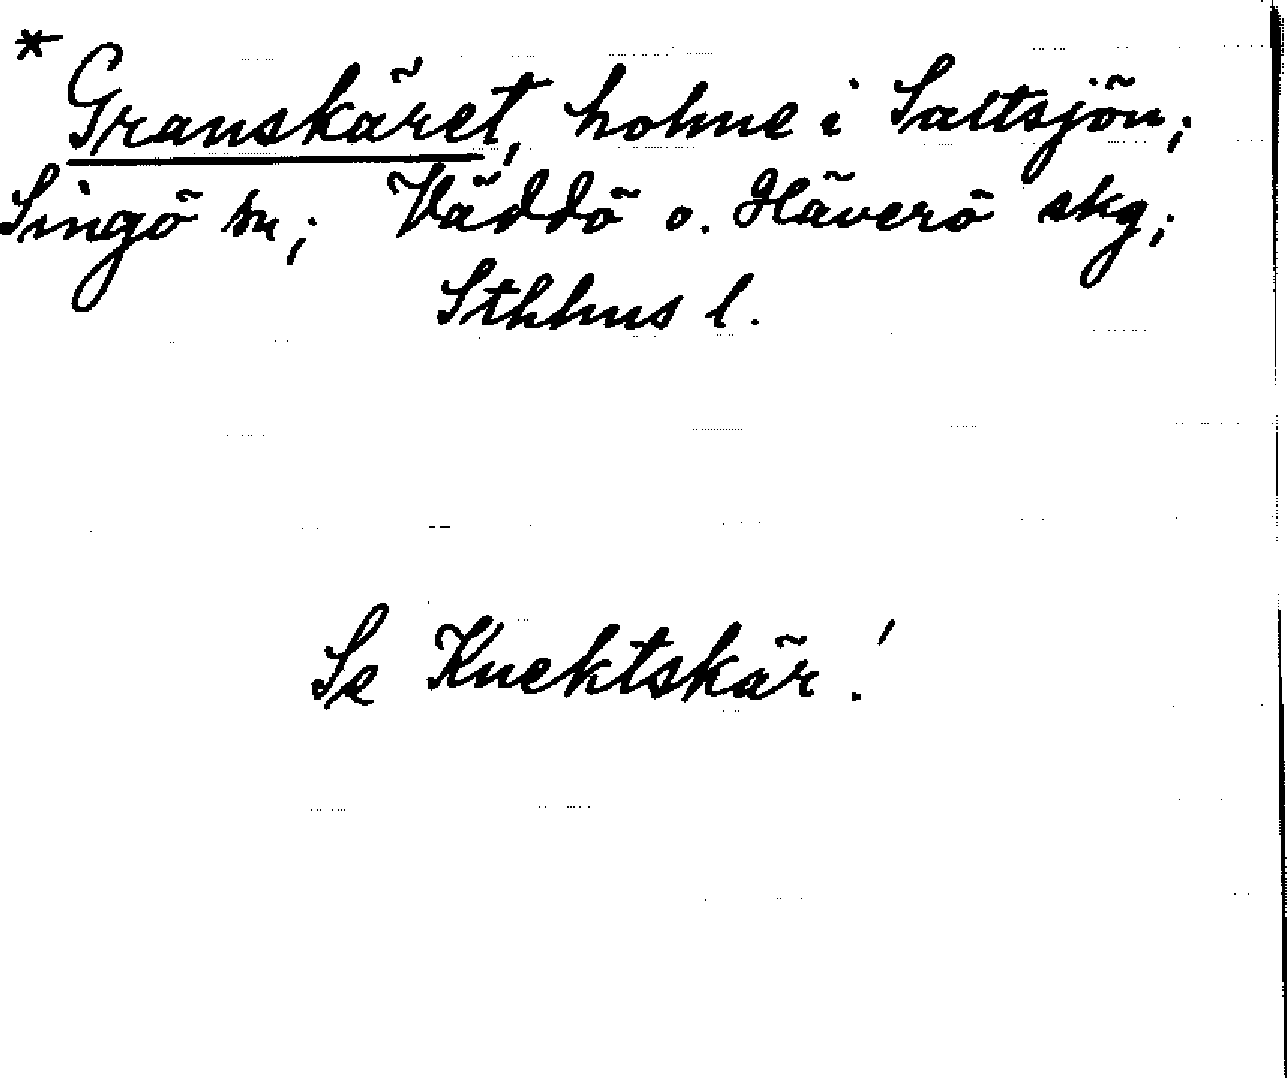 * Granskäret, holme i Saltsjön;
Singö sn; Väddö o. Häverö skg;
Sthlms l.
Se Knektskär!